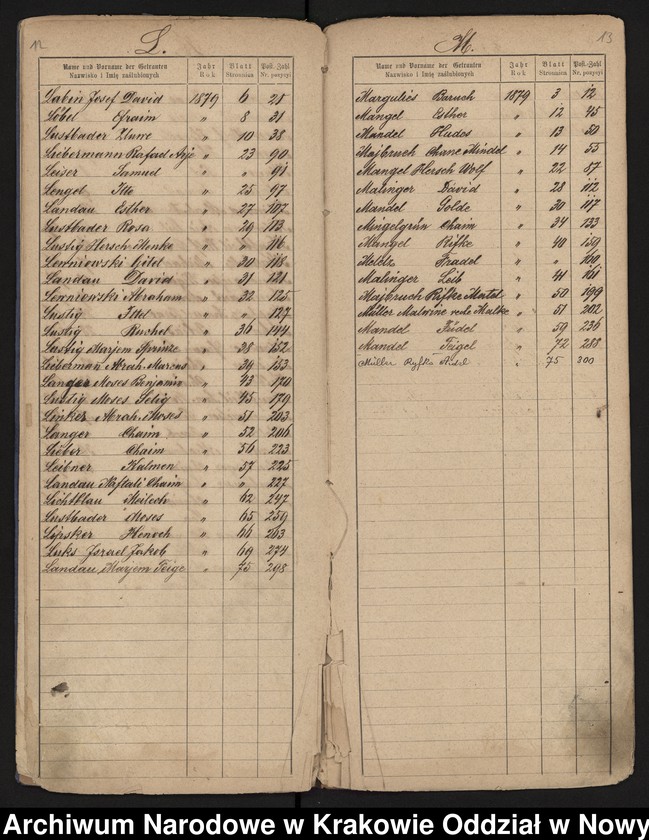 12
L.
Name und Vorname der Getrauten
Nazwisko i Imię zaślubionych
Jahr
Rok
Blatt
Stronnica
Post-Zahl
Nr. pozycyi
Labin Josef David 1879 6 28
Löbel Efraim " 8 31
Lustbader Zlune " 10 38
Liebermann Rafael Arje " 23 90
Leiser Samuel " " 91
Lengel Itte " 25 97
Landau Esther " 27 107
Lustbader Rosa " 29 113
Lustig Hersch Menke " " 116
Lewniowski Gitel " 30 118
Landau David " 31 121
Lewniowski Abraham " 32 125
Lustig Ittel " " 127
Lustig Ruchel " 36 144
Lustig Marjem Sprinze " 38 152
Lieberman Abrah. Marcus " 39 153
Langer Moses Benjamin " 43 170
Lustig Moses Selig " 45 179
Linker Abrah. Moses " 51 203
Langer Chaim " 52 206
Lieber Chaim " 56 223
Leibner Kalmen " 57 225
Landau Naftali Chaim " " 227
Lichtblau Meilech " 62 247
Lustbader Moses " 65 259
Lipsker Henoch " 66 263
Luks Israel Jakob " 69 274
Landau Marjem Feige " 75 298
13
M.
Name und Vorname der Getrauten
Nazwisko i Imię zaślubionych
Jahr
Rok
Blatt
Stronnica
Post-Zahl
Nr. pozycyi
Margulies Baruch 1879 3 12
Mangel Esther " 12 45
Mandel Hudes " 13 50
Majbruch Chane Mindel " 14 55
Mangel Hersch Wolf " 22 87
Malinger David " 28 112
Mandel Golde " 30 117
Mingelgrün Chaim " 34 133
Mangel Rifke " 40 159
Fradel " " 160
Malinger Leib " 41 161
Majbruch Rifke Matel " 50 199
Müller Malwine rede Malke " 51 202
Mandel Feidel " 59 236
Mandel Feigel " 72 288
Müller Ryfka " 75 300
Archiwum Narodowe w Krakowie Oddział w Nowy